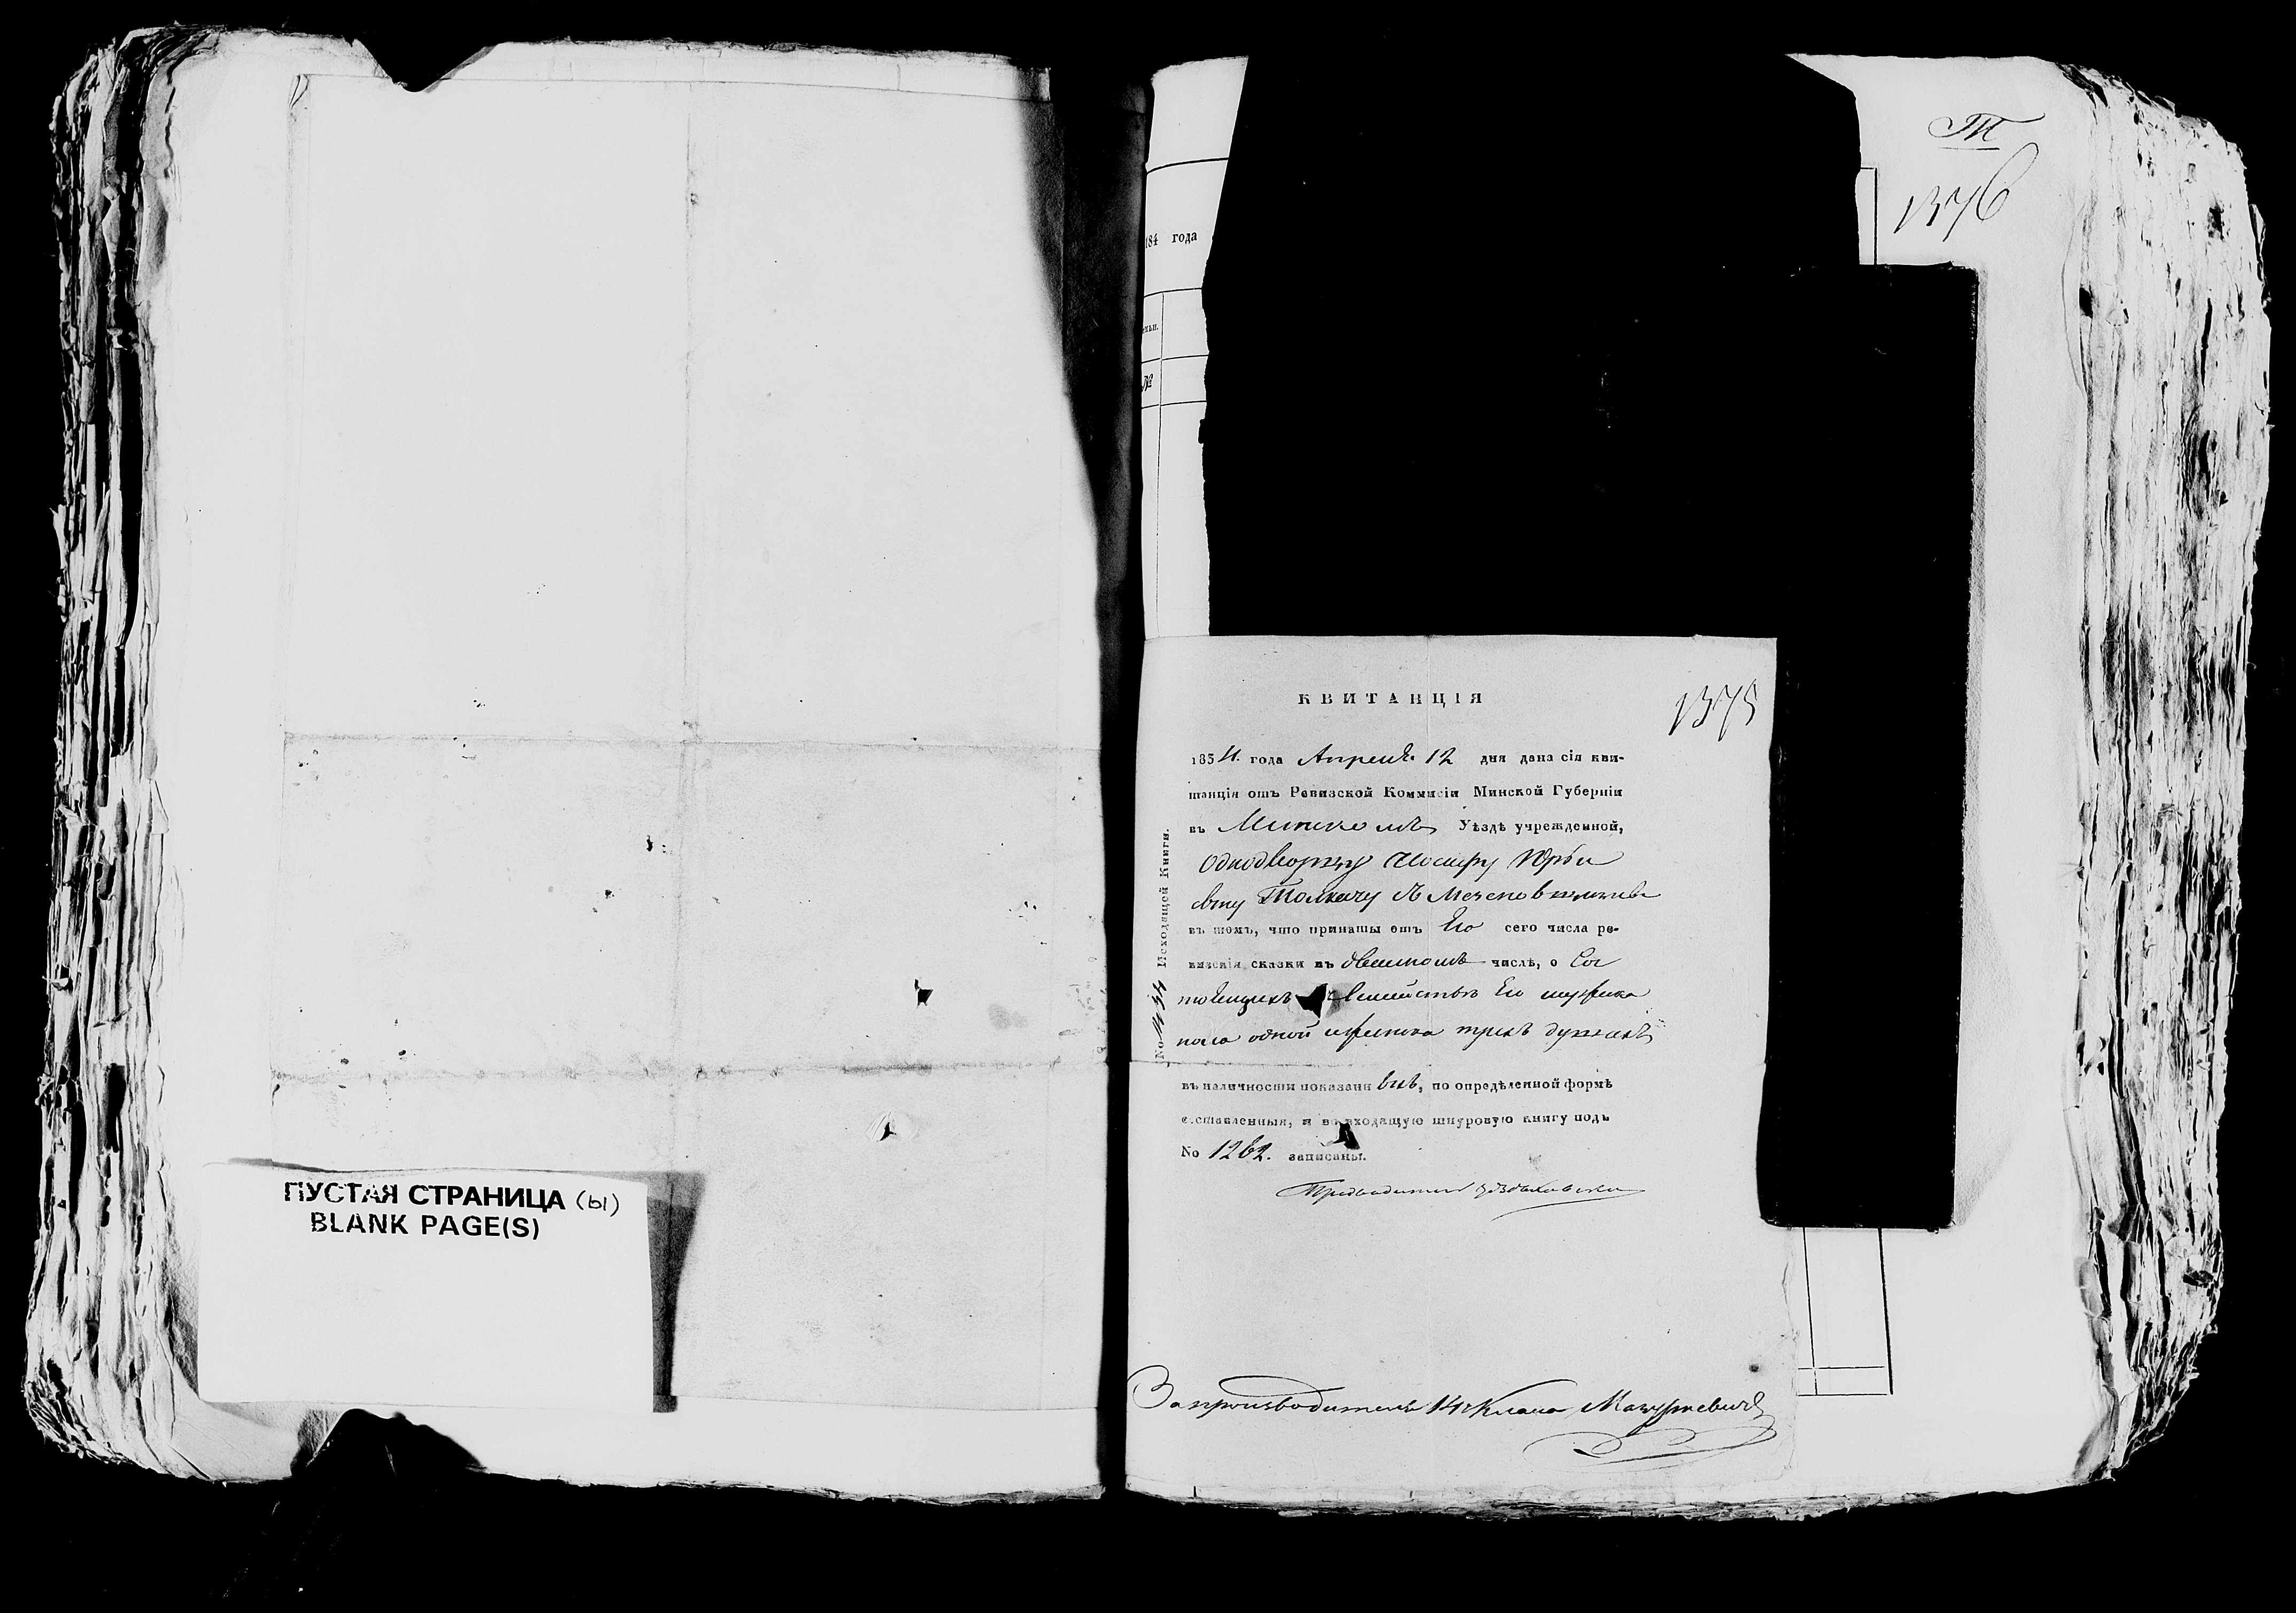 ПУСТАЯ СТРАНИЦА (ы)
BLANK PAGE(S)
184 года
1376
КВИТАНЦІЯ
1375
1834. года Апреля 12 дня дана сія кви-
танція отъ Ревизской Коммисіи Минской Губерніи
въ Минскомъ Уѣздѣ учрежденной,
Однодворцу Іосифу Юрьи
евму Толкачу
въ томъ, что принаты отъ Его сего числа ре-
визскія сказки въ двойномъ числѣ, о Сос
тоящихъ Семействѣ Его мужска
пола одной и женска трехъ душахъ
въ наличности показанныхъ, по опредѣленной формѣ
составленныя, и во входящую шнуровую книгу подъ
No 1262. записаны.
Предводитель
Запроизводителя 14 Класа Мацкевичъ
No Исходящей Книги.